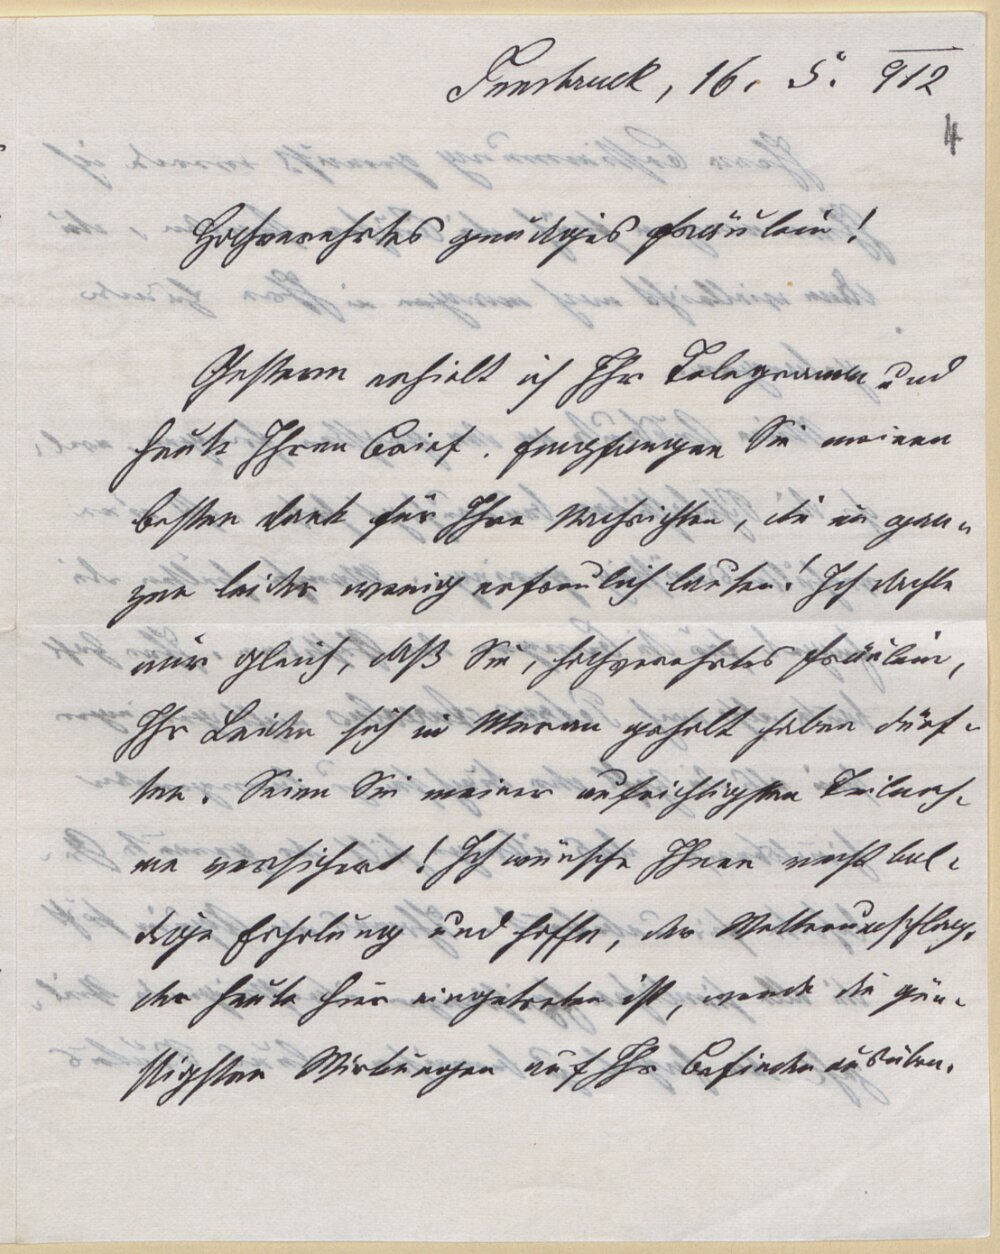 Innsbruck, 16. 5. 912
4
Hochverehrtes gnädiges Fräulein!
Gestern erhielt ich Ihr Telegramm und
heute Ihren Brief. Empfangen Sie meinen
besten Dank für Ihre Nachrichten, die im gan-
zen leider wenig erfreulich lauten! Ich dachte
mir gleich, daß Sie, hochverehrtes Fräulein,
Ihr Leiden sich in Meran geholt haben dürf-
ten. Seien Sie meiner aufrichtigsten Teilnah-
me versichert! Ich wünsche Ihnen recht bal-
dige Erholung und hoffe, der Wetterumschlag,
der heute hier eingetreten ist, werde die gün-
stigsten Wirkungen auf Ihr Befinden ausüben.